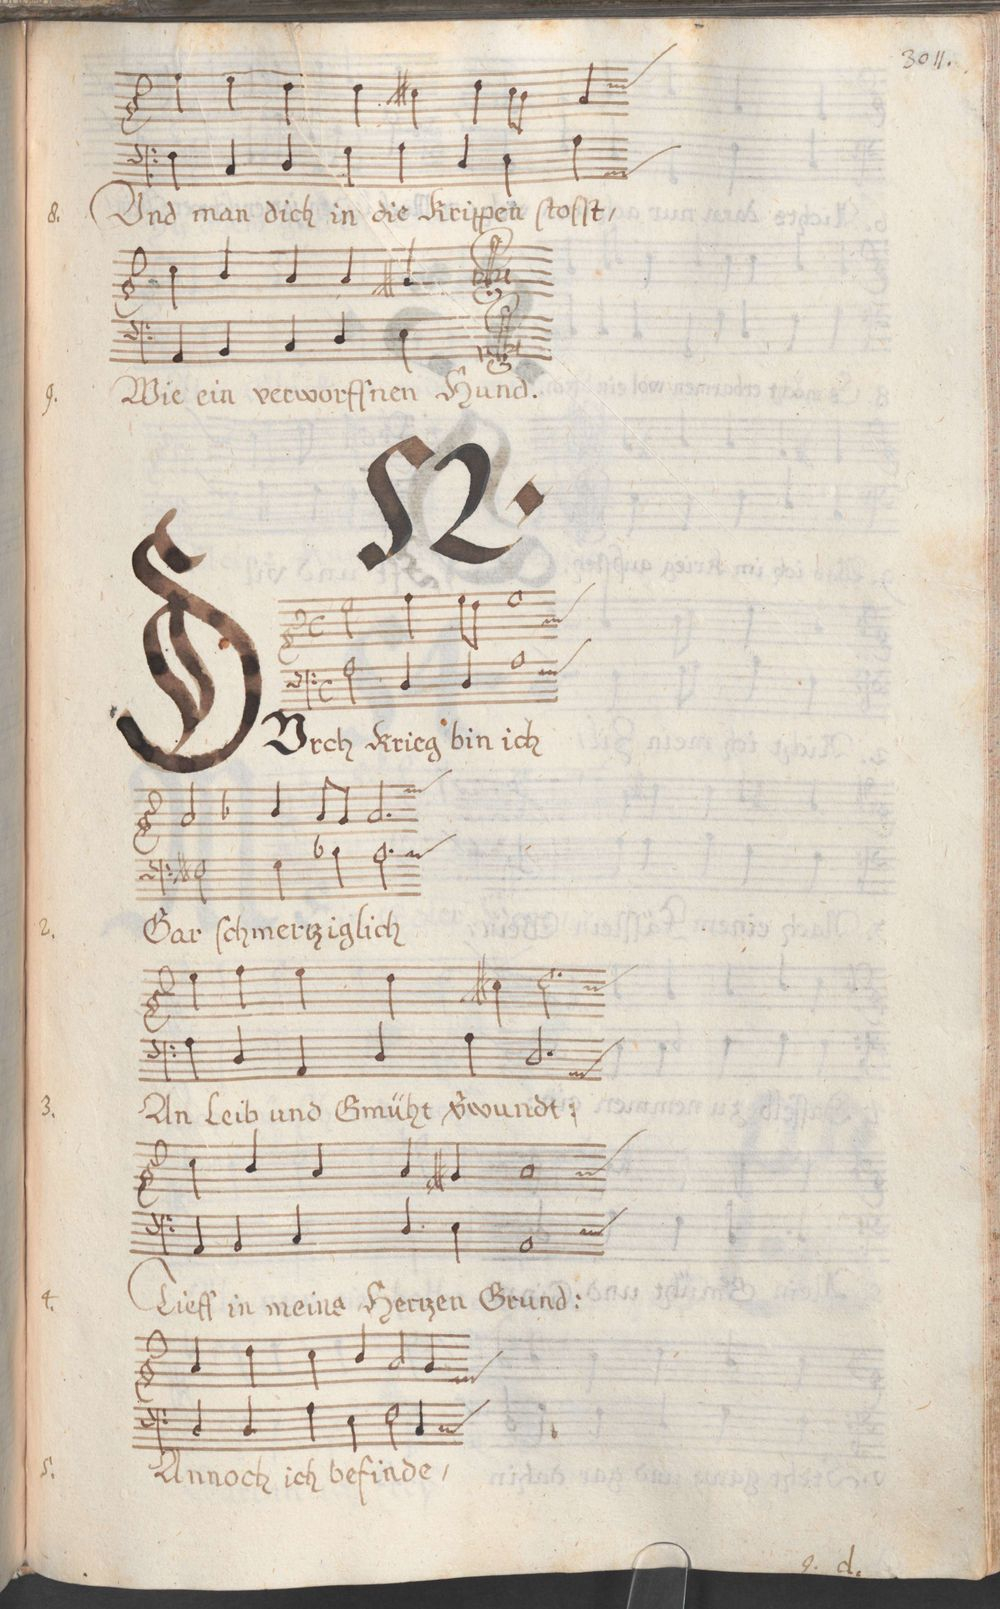 3011.
8. Und man dich in die Krippen stosst,
9. Wie ein verworffnen Hund.
N.
DUrch Krieg bin ich
2. Gar schmertziglich
3. An Leib und Gmüht v̈wundt;
4. Tieff in meins Hertzen Grund:
5. Annoch ich befinde,
9. d.